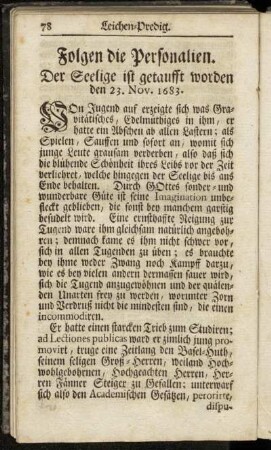 78 Leichen-Predigt.
Folgen die Personalien.
Der Seelige ist getaufft worden
den 23. Nov. 1683.
VOn Jugend auf erzeigte sich was Gra-
vitätisches, Edelmüthiges in ihm, er
hatte ein Abscheu ab allen Lastern; als
Spielen, Sauffen und sofort an, womit sich
junge Leute grausam verderben, also daß sich
die blühende Schönheit ihres Leibs vor der Zeit
verliehret, welche hingegen der Seelige bis ans
Ende behalten. Durch GOttes sonder- und
wunderbare Güte ist seine Imagination unbe-
fleckt geblieben, die sonst bey manchem garstig
besudelt wird. Eine ernsthaffte Neigung zur
Tugend ware ihm gleichsam natürlich angeboh-
ren; demnach kame es ihm nicht schwer vor,
sich in allen Tugenden zu üben; es brauchte
bey ihme weder Zwang noch Kampff darzu,
wie es bey vielen andern dermassen saur wird,
sich die Tugend anzugewöhnen und der quälen-
den Unarten frey zu werden, worunter Zorn
und Verdruß nicht die mindesten sind, die einen
incommodiren.
Er hatte einen starcken Trieb zum Studiren;
ad Lectiones publicas ward er zimlich jung pro-
movirt, truge eine Zeitlang den Basel-Huth,
seinem seligen Groß-Herren, weiland Hoch-
wohlgebohrnen, Hochgeachten Herren, Her-
ren Fänner Steiger zu Gefallen; unterwarf
sich also den Academischen Gesätzen, perorirte,
dispu-